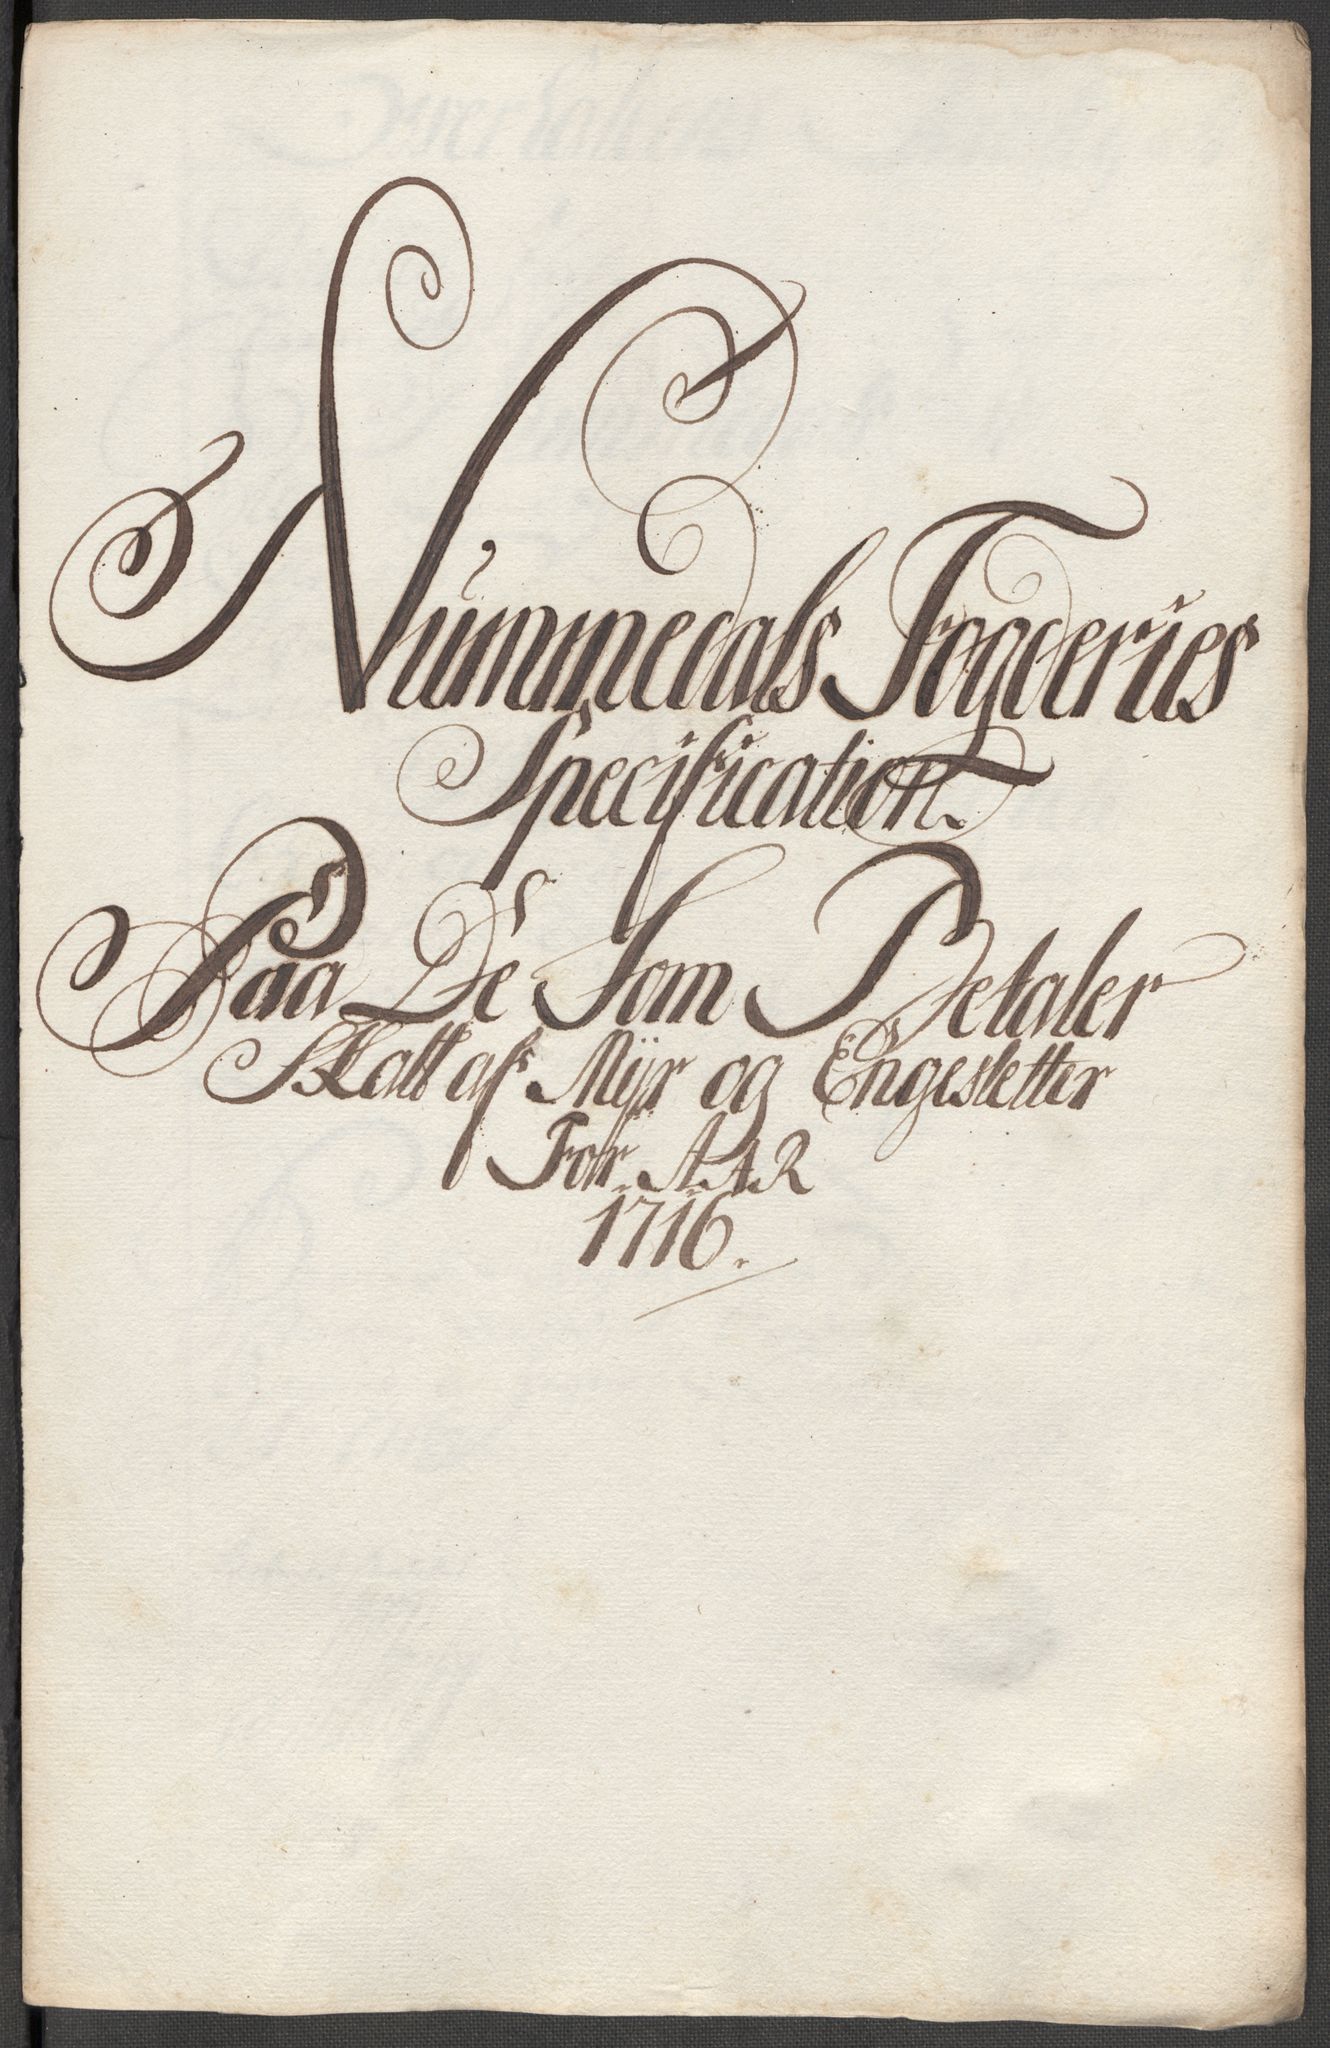 Nummedals Fogderies
Specification
Paa De Som Betaler
Skatt af Myr og Engesletter
For AAR
1716.